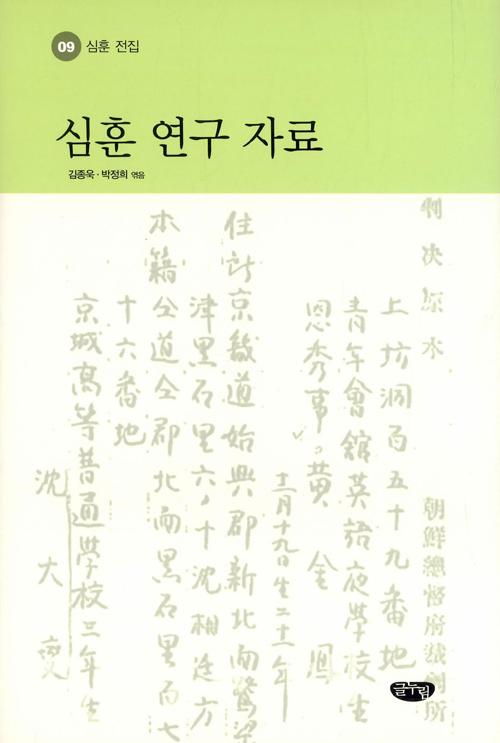 09 심훈 전집
심훈 연구 자료
김종욱·박정희 엮음
判决原本
朝鮮總督府裁判所
上坊洞百五十九番地
青年會館英語夜學校生
恩秀事 黄金鳳
十二月十九日生二十二年
住所京畿道始興郡新北面鷺梁
津黑石里六ノ十沈相廷方
本籍仝道仝郡北面黑石里百七
十六番地
京城高等普通學校三年生
沈大燮
글누림